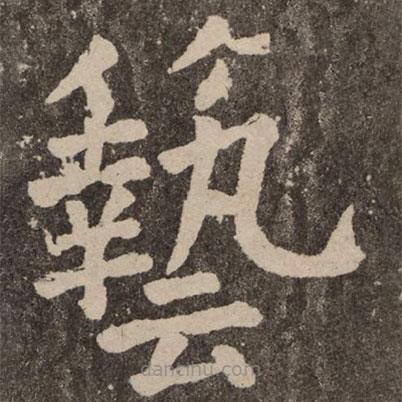 藝
dancihu.com